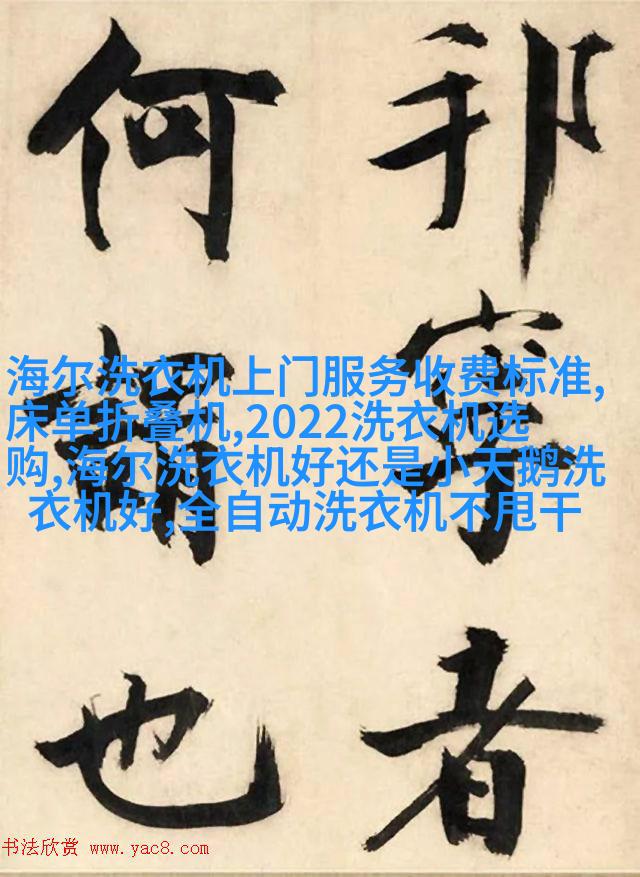 邦寧者
何也
海尔洗衣机上门服务收费标准,
床单折叠机,2022洗衣机选
购,海尔洗衣机好还是小天鹅洗
衣机好,全自动洗衣机不甩干
书法欣赏 www.yac8.com